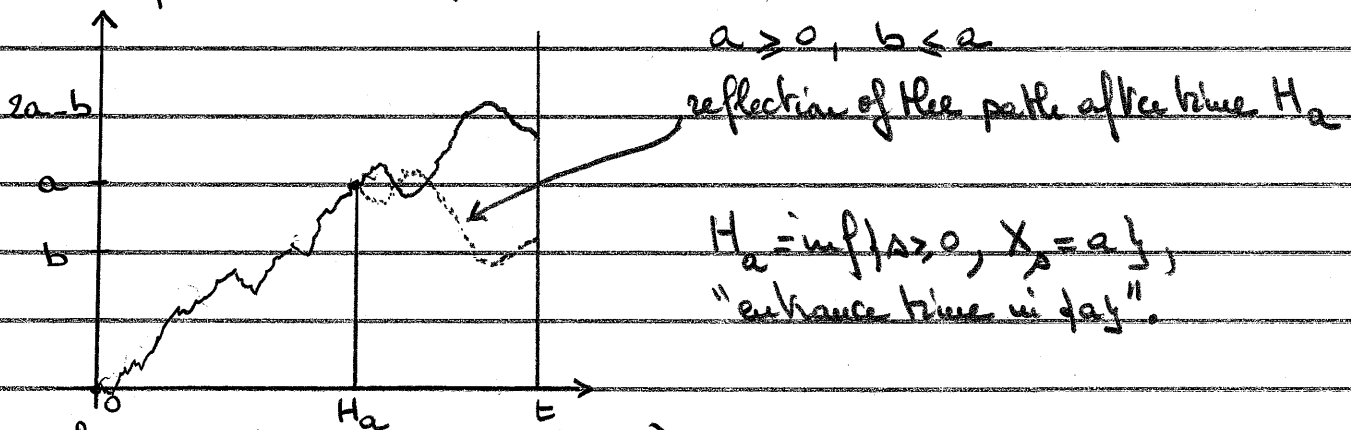 a ≥ 0, b ≤ a
2a-b
reflection of the path after time H_a
a
b
H_a = inf{s ≥ 0, X_s = a},
"entrance time in {a}".
0
H_a
t